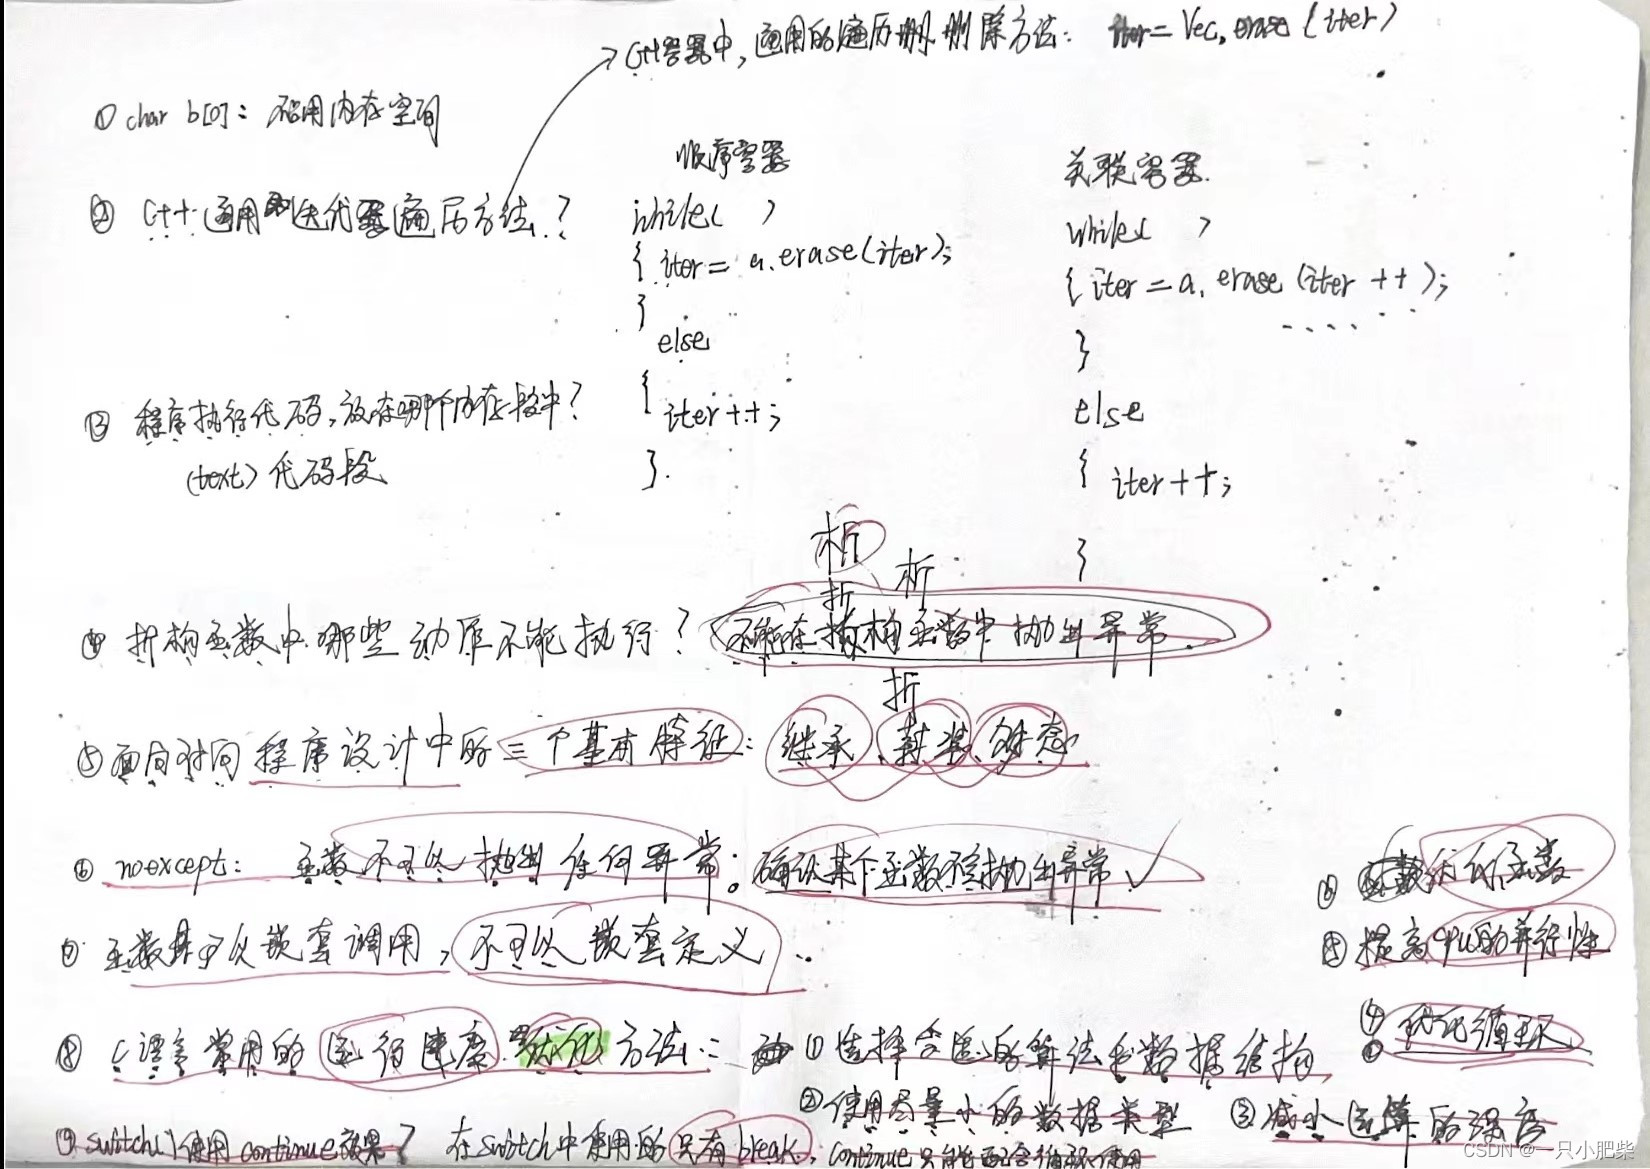 C++容器中，通用的遍历删删除方法： iter = Vec.erase (iter)
① char b[0]： 不占用内存空间
② C++ 通用迭代器遍历方法？
顺序容器
while( )
{ iter = a.erase(iter);
}
else
{
iter++;
}.
关联容器.
while( )
{ iter = a. erase (iter ++);
}
else
{ iter ++;
}
③ 程序执行代码，放在哪个内存段中？
(text) 代码段
析
折 析
④ 折构函数中哪些动作不能执行？ 不能在折构函数中抛出异常.
折
⑤ 面向对向程序设计中的三个基本特征： 继承、封装、多态
⑥ noexcept： 函数不可以抛出任何异常； 确认某个函数不会抛出异常 ✓
⑦ 函数是可以嵌套调用，不可以嵌套定义
⑧ C语言常用的运行速度优化方法：： ① 选择合适的算法和数据结构，
② 使用尽量小的数据类型 ③ 减小运算的强度
④ 优化循环
⑤ 提高cpu的并行性
⑥ 优化函数
⑨ switch()使用 continue效果？ 在switch中使用的只有 break，continue只能配合循环使用
CSDN @一只小肥柴